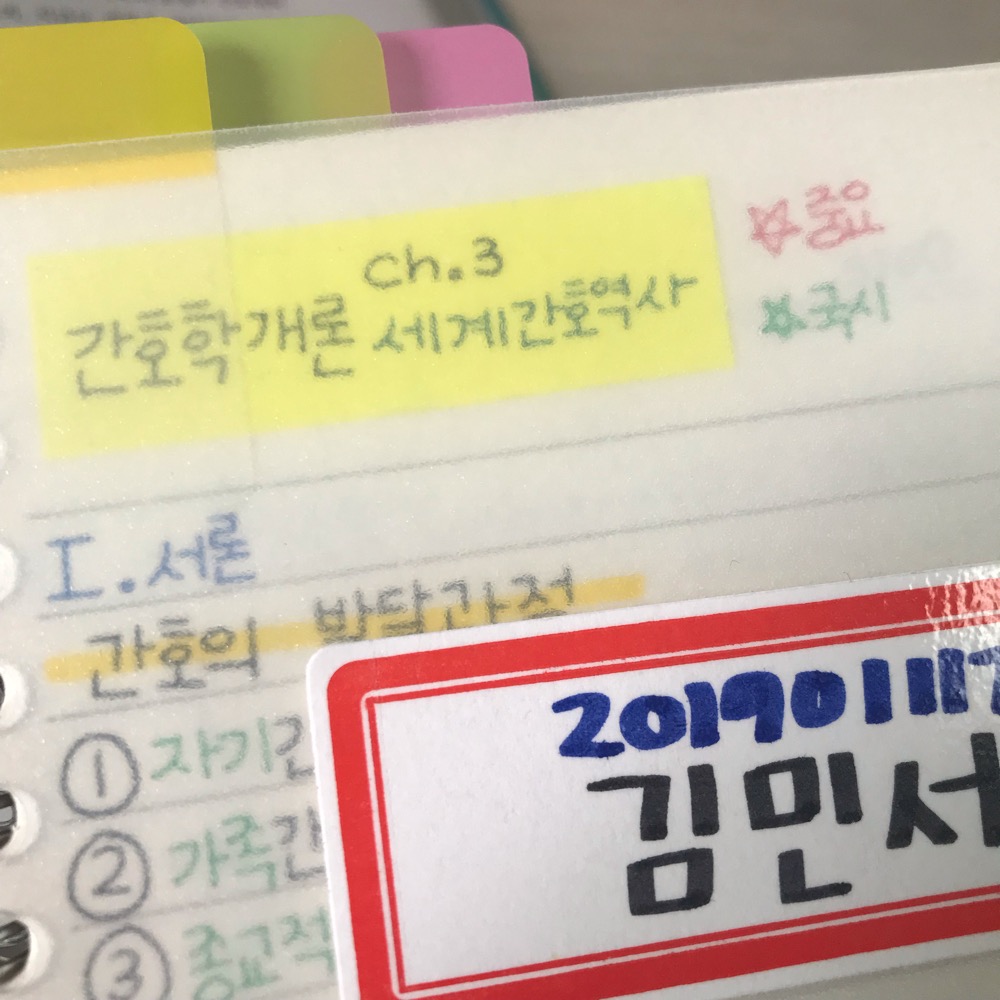 ch.3
간호학개론 세계간호역사
☆중요
☆국시
I. 서론
간호의 발달과정
① 자기간
② 가족간
③ 종교적
김민서